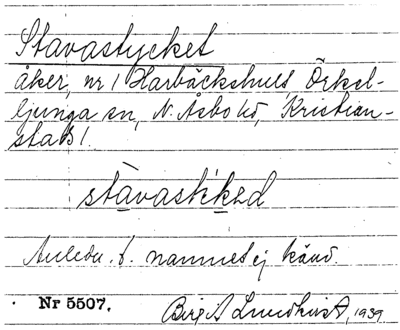 Stavastycket
åker, nr 1 Harbäckshult Örkel-
ljunga sn, N. Åsbo hd, Kristian-
stads l.
stàvastikəd
Anledn. t. namnet ej känd.
Nr 5507.
Birgit Lundkvist, 1939